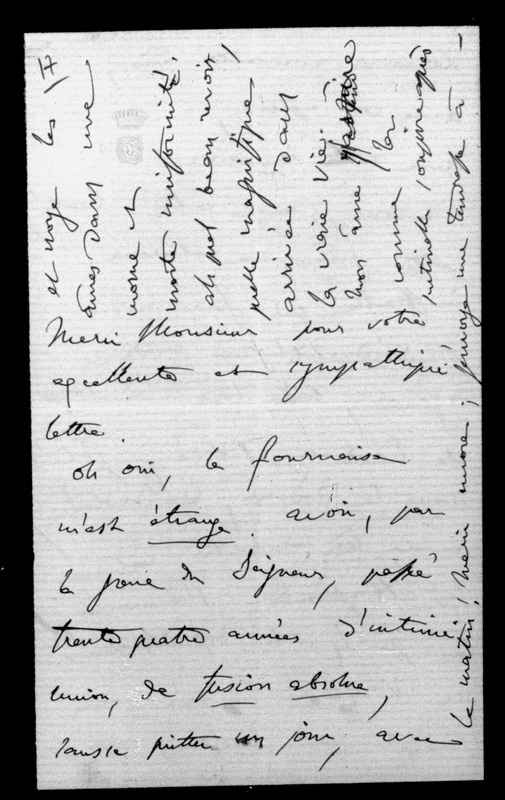 Merci Monsieur pour votre
excellente et sympathique
lettre.
oh oui, la fournaise
m'est étrange. avoir, par
la grace du Seigneur, passé
trente quatre années d'intime
union, de fusion absolue,
sans se quitter un jour, avec
et noye les
âmes dans une
morne et
morte uniformité.
ah quel beau revoir,
quelle magnifique
arrivée dans
la vraie vie.
mon âme
comme la
sentinelle soupire après
le matin! merci encore; j'envoye une tendresse à -